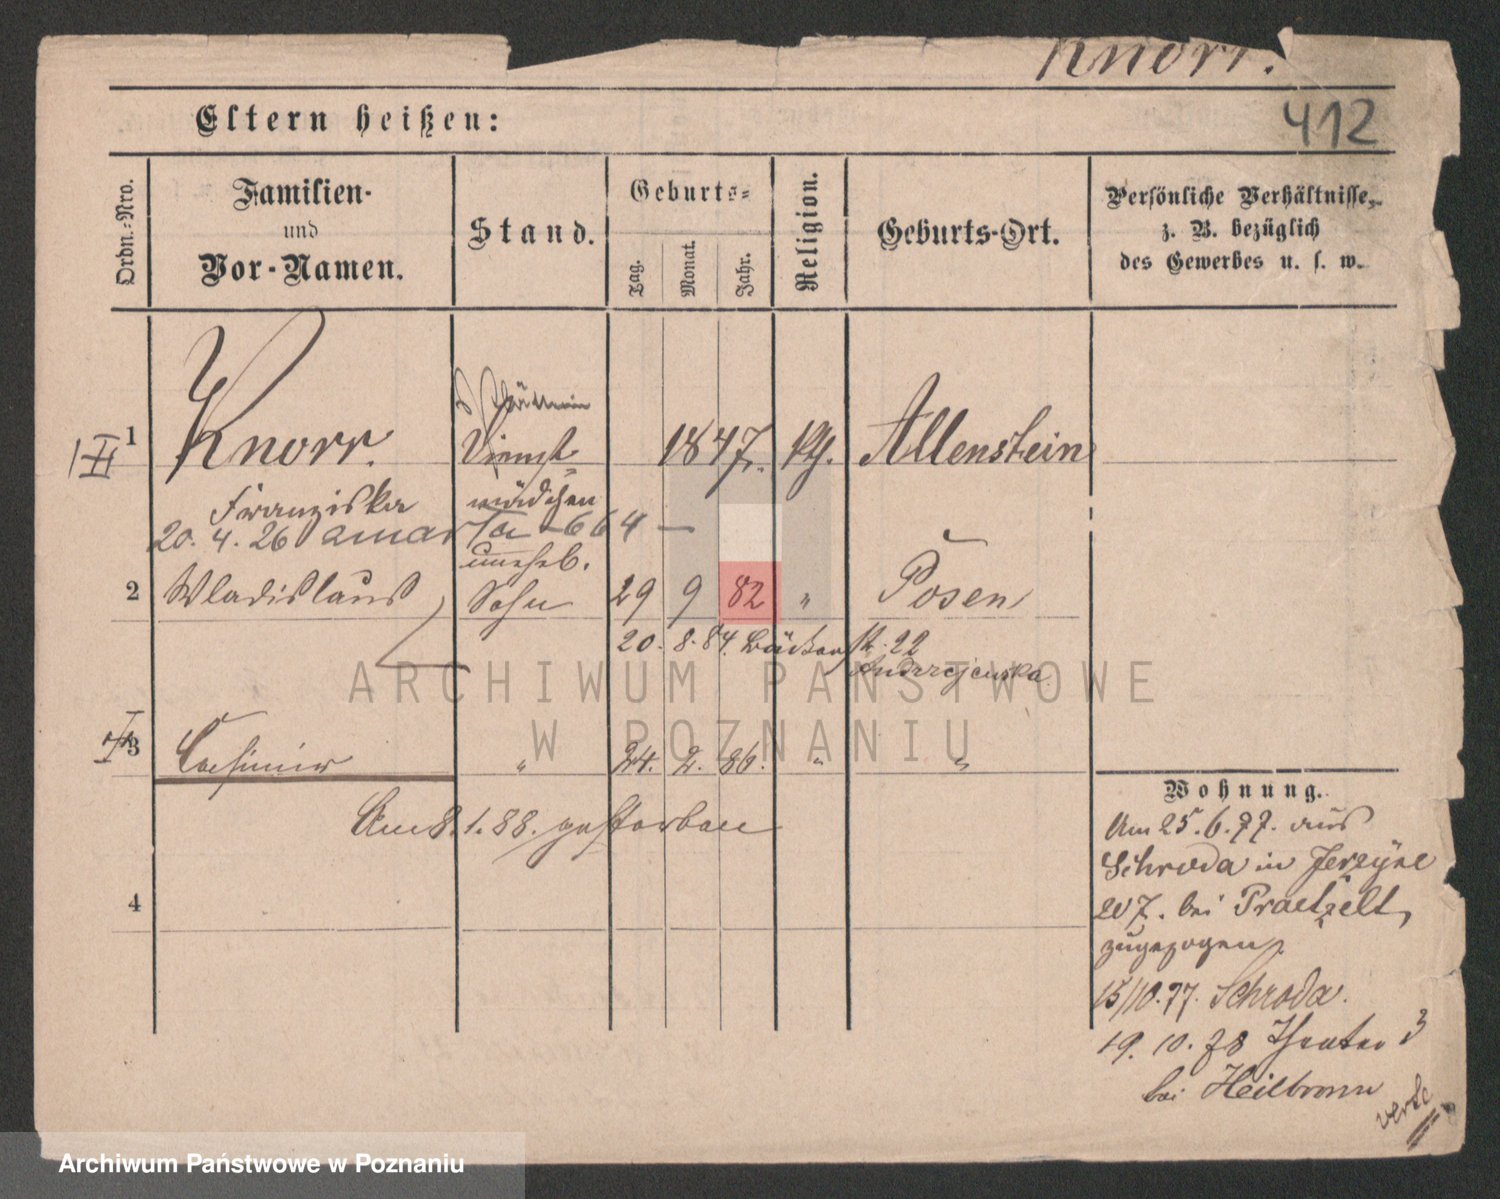 Knorr.
412
Eltern heißen:
Ordn.-Nro.
Familien-
und
Vor-Namen.
Stand.
Geburts-
Tag.
Monat.
Jahr.
Religion.
Geburts-Ort.
Persönliche Verhältnisse,
z. B. bezüglich
des Gewerbes u. s. w.
1 Knorr. Dienst- 1847. kth. Allenstein
Franziska mädchen
20. 4. 26 amarta - 664 -
unehel.
2 Wladislaus Sohn 29 9 82 " Posen
20. 8. 84.
Andrzejewska
ARCHIWUM PAŃSTWOWE
W POZNANIU
3 Casimir " 24. 2. 86. " "
Am 8.1.88. gestorben
4
Wohnung.
Am 25.6.77. aus
Schroda in Jerzyce
207. bei Praetzelt,
zugezogen
15/10.77. Schroda.
19. 10. 78 Theater 3
bei Heilbronn
verte
Archiwum Państwowe w Poznaniu